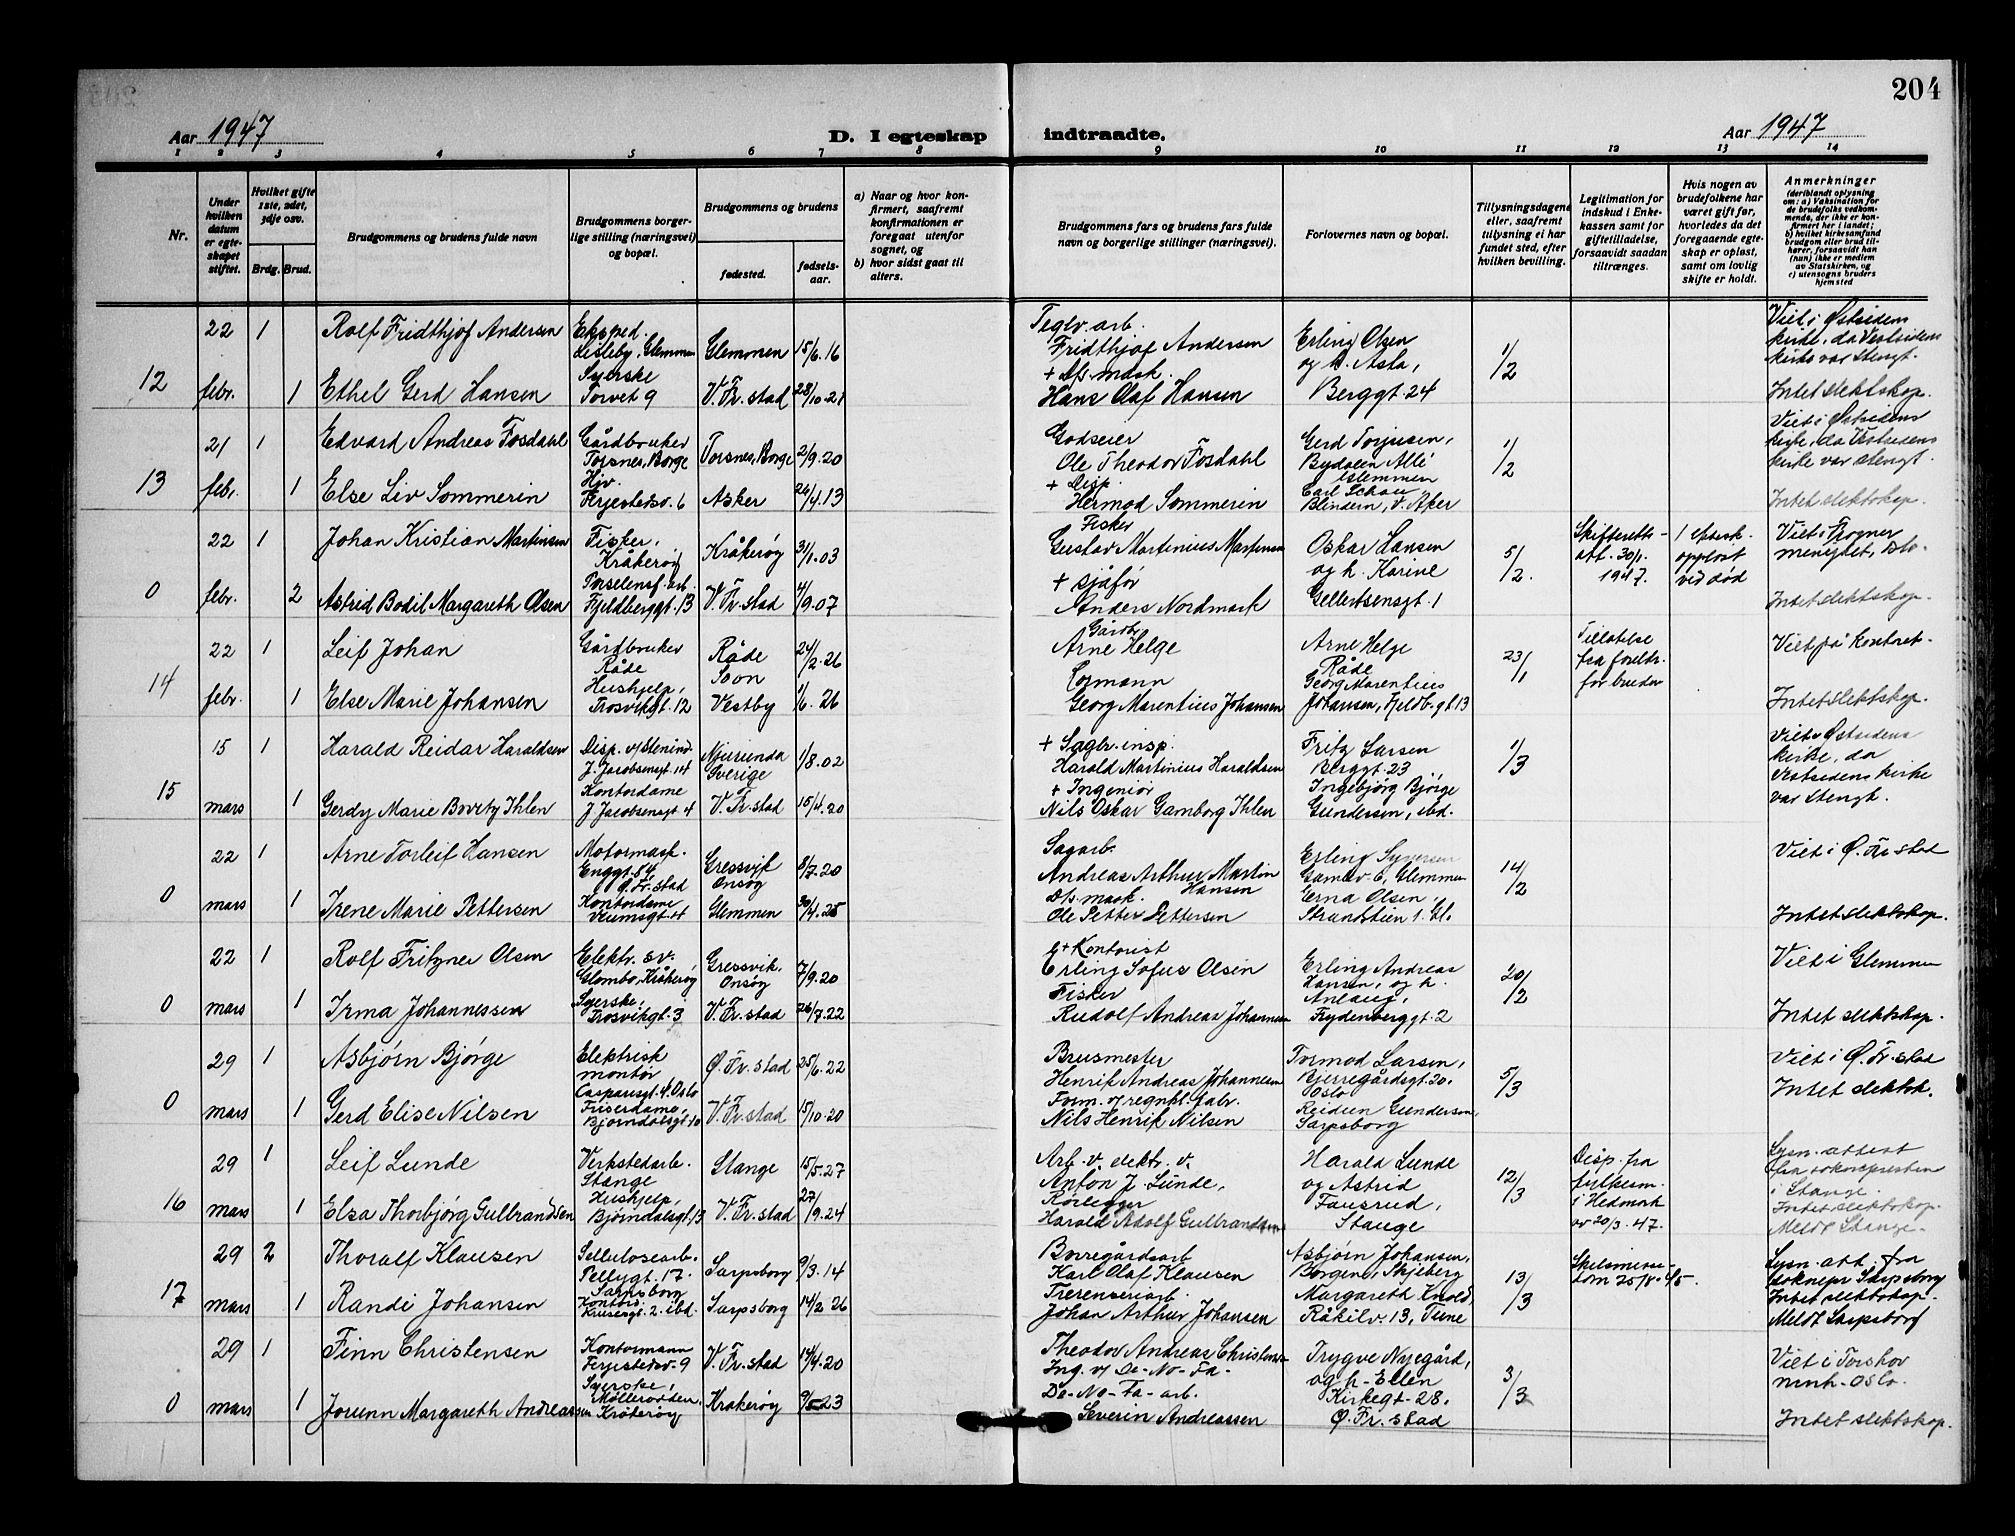 204
Aar 1947
D. I egteskap indtraadte.
Aar 1947
1 2 3 4 5 6 7 8 9 10 11 12 13 14
Nr.
Under hvilken datum er egteskapet stiftet.
Hvilket gifte 1ste, 2det, 3dje osv.
Brdg. Brud.
Brudgommens og brudens fulde navn
Brudgommens borgerlige stilling (næringsvei) og bopæl.
Brudgommens og brudens
fødested.
fødselsaar.
a) Naar og hvor konfirmert, saafremt konfirmationen er foregaat utenfor sognet, og
b) hvor sidst gaat til alters.
Brudgommens fars og brudens fars fulde navn og borgerlige stillinger (næringsvei).
Forlovernes navn og bopæl.
Tillysningsdagene eller, saafremt tillysning ei har fundet sted, efter hvilken bevilling.
Legitimation for indskud i Enkekassen samt for giftetilladelse, forsaavidt saadan tiltrænges.
Hvis nogen av brudefolkene har været gift før, hvorledes da det foregaaende egteskap er opløst, samt om lovlig skifte er holdt.
Anmerkninger
(deriblandt oplysning om: a) Vaksination for de brudefolks vedkommende, der ikke er konfirmert her i landet; b) hvilket kirkesamfund brudgom eller brud tilhører, forsaavidt han (hun) ikke er medlem av Statskirken, og c) utensogns bruders hjemsted
12
22 febr.
1
Rolf Fridthjof Andersen
Eksped. Lisleby, Glemmen
Glemmen
15/6.16
Teglv. arb.
Fridthjof Andersen
Erling Olsen og h. Asta, Berggt. 24
1/2
Viet i Østsidens kirke, da Vestsidens kirke var stengt.
1
Ethel Gerd Hansen
Syerske Torvet 9
V. Fr. stad
28/10.21
+ Ds. mask.
Hans Olaf Hansen
Intet slektskap.
13
21 febr.
1
Edvard Andreas Fosdahl
Gårdbruker Torsnes, Borge
Torsnes, Borge
2/9.20
Godseier
Ole Theodor Fosdahl
Gerd Torjusen, Bydalen Allé Glemmen
1/2
Viet i Østsidens kirke, da Vestsidens kirke var stengt.
1
Else Liv Sommerin
Hjv. Ferjestedsv. 6
Asker
26/4.13
+ Disp.
Hermod Sommerin
Carl Schou Blindern, V. Aker
Intet slektskap.
0
22 febr.
1
Johan Kristian Martinsen
Fisker, Kråkerøy
Kråkerøy
31/1.03
Fisker
Gustav Martinius Martinsen
Oskar Hansen og h. Karine Gellertsensgt. 1
5/2.
Skifteretts-att. 30/1. 1947.
1 ektesk. oppløst ved død
Viet i Frogner menighet, Oslo.
2
Astrid Bodil Margareth Olsen
Porselensf. arb. Fjeldberggt. 13
V. Fr. stad
4/9.07
+ sjåfør
Anders Nordmark
Intet slektskap.
14
22 febr.
1
Leif Johan
Gårdbruker Råde
Råde
24/2.26
Gårdbr.
Arne Helge
Arne Helge Råde
23/1
Tillatelse fra foreldr. for bruden
Viet på kontoret.
1
Else Marie Johansen
Hushjelp, Trosvikgt. 12
Soon Vestby
1/6.26
Formann
Georg Marentius Johansen
Georg Marentius Johansen, Fjeldb.gt. 13
Intet slektskap.
15
15 mars
1
Harald Reidar Haraldsen
Disp. v/Stenind. J. Jacobsensgt. 14
Njurunda Sverige
1/8.02
+ Sagbr. insp.
Harald Martinius Haraldsen
Fritz Larsen Berggt. 23
1/3
Viet i Østsidens kirke, da Vestsidens kirke var stengt.
1
Gerdy Marie Bovitz Ihlen
Kontordame J. Jacobsensgt. 4
V. Fr. stad
15/4.20
+ Ingeniør
Nils Oskar Gamborg Ihlen
Ingebjørg Bjørge Gundersen, ibd.
0
22 mars
1
Arne Torleif Hansen
Motormasp. Enggt. 84, Ø. Fr. stad
Gressvik Onsøy
8/7.20
Sagarb.
Andreas Arthur Martin Hansen
Erling Syversen Gamlev. 6, Glemmen
14/2
Viet i Ø. Fr. stad
1
Irene Marie Pettersen
Kontordame Veumsgt. 44
Glemmen
30/4.25
Ds. mask.
Ole Petter Pettersen
Erna Olsen, Strandstien 1. Gl.
Intet slektskap.
0
22 mars
1
Rolf Fritzner Olsen
Elektr. sv. Glombo, Kråkerøy
Gressvik. Onsøy
7/9.20
+ Kontorist
Erling Sofus Olsen
Erling Andreas Hansen, og h. Anlaug, Frydenberggt. 2
20/2
Viet i Glemmen
1
Irma Johannessen
Syerske, Trosvikgt. 3
V. Fr. stad
26/7.22
Fisker
Rudolf Andreas Johannesen
Intet slektskap.
0
29 mars
1
Asbjørn Bjørge
Elektrisk montør Casparisgt. 4. Oslo
Ø. Fr. stad
25/6.22
Brusmester
Henrik Andreas Johannesen
Tormod Larsen, Bjerregårdsgt. 20. Oslo
5/3
Viet i Ø. Fr. stad
Intet slektsk.
1
Gerd Elise Nilsen
Friserdame, Bjørndalsgt. 10
V. Fr. stad
15/10.20
Form. og regnkl. fabr.
Nils Henrik Nilsen
Reidun Gundersen, Sarpsborg
16
29 mars
1
Leif Lunde
Verkstedarb. Stange
Stange
15/5.27
Arb. v. elektr. v.
Anton J. Lunde,
Harald Lunde og Astrid Fausrud, Stange
12/3
Disp. fra fylkesm. i Hedmark av 20/3.47.
Lysn. attest fra sokneprestem i Stange.
1
Elsa Thorbjørg Gulbrandsen
Hushjelp, Bjørndalsgt. 13
V. Fr. stad
27/9.24
Rørlegger
Harald Adolf Gulbrandsen
Intet slektskap.
Meldt Stange.
17
29 mars
2
Thoralf Klausen
Sellulosearb. Pellygt. 17. Sarpsborg
Sarpsborg
9/3.14
Borregårdsarb
Karl Olaf Klausen
Asbjørn Johansen, Borgen, Skjeberg
13/3
Skilsmisse-dom 25/8-45.
Lysn. att. fra soknepr Sarpsborg
1
Randi Johansen
Kontord. Krusesgt. 2. ibd.
Sarpsborg
14/2.26
Johan Arthur Johansen
Margareth Knold, Råkilv. 13, Tune
Intet slektskap.
Meldt Sarpsborg
0
29 mars
1
Finn Christensen
Kontormann Ferjestedsv. 9
V. Fr. stad
14/4.20
Theodor Andreas Christensen
Ing. v/ De-No-Fa-
Trygve Nyegård, og h. Ellen Kirkegt. 28. Ø. Fr. stad
3/3
Viet i Torshov minh. Oslo.
1
Jorunn Margareth Andreassen
Syerske, Møllerodden, Kråkerøy
Kråkerøy
9/5 23
De-No-Fa-arb.
Severin Andreassen
Intet slektskap.